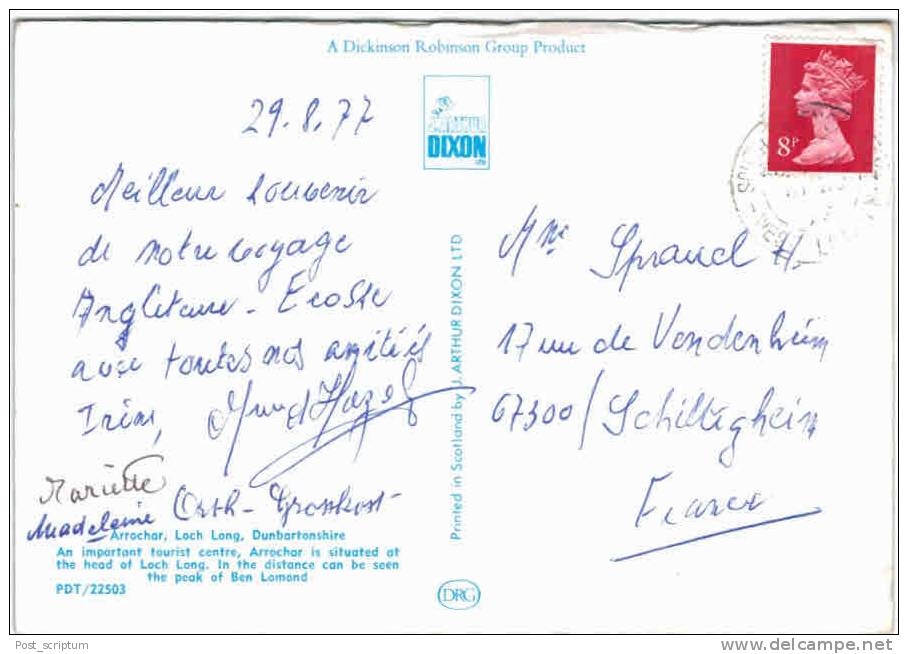 A Dickinson Robinson Group Product
DIXON
29.8.77
Meilleur Souvenir
de notre voyage
Angleterre - Ecosse
avec toutes nos amitiés
Mariette
Madeleine
Arrochar, Loch Long, Dunbartonshire
An important tourist centre, Arrochar is situated at
the head of Loch Long. In the distance can be seen
the peak of Ben Lomond
PDT/22503
Printed in Scotland by J. ARTHUR DIXON LTD
DRG
8P
Mme Sprauel H.
17 rue de Vendenheim
67300/Schiltigheim
France
Post_scriptum
www.delcampe.net